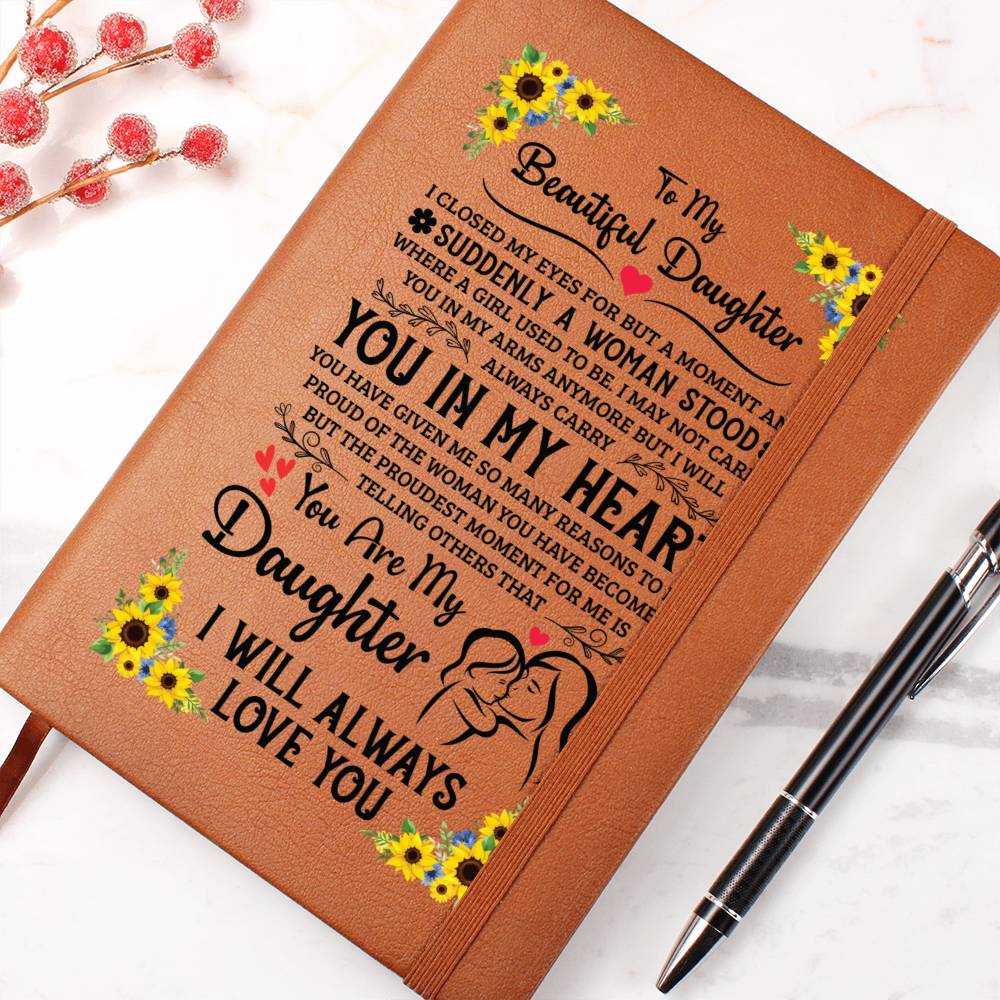 To My
Beautiful Daughter
I CLOSED MY EYES FOR BUT A MOMENT AN
SUDDENLY A WOMAN STOOD
WHERE A GIRL USED TO BE. I MAY NOT CAR
YOU IN MY ARMS ANYMORE BUT I WILL
ALWAYS CARRY
YOU IN MY HEAR
YOU HAVE GIVEN ME SO MANY REASONS TO
PROUD OF THE WOMAN YOU HAVE BECOME
BUT THE PROUDEST MOMENT FOR ME IS
TELLING OTHERS THAT
You Are My
Daughter
I WILL ALWAYS
LOVE YOU